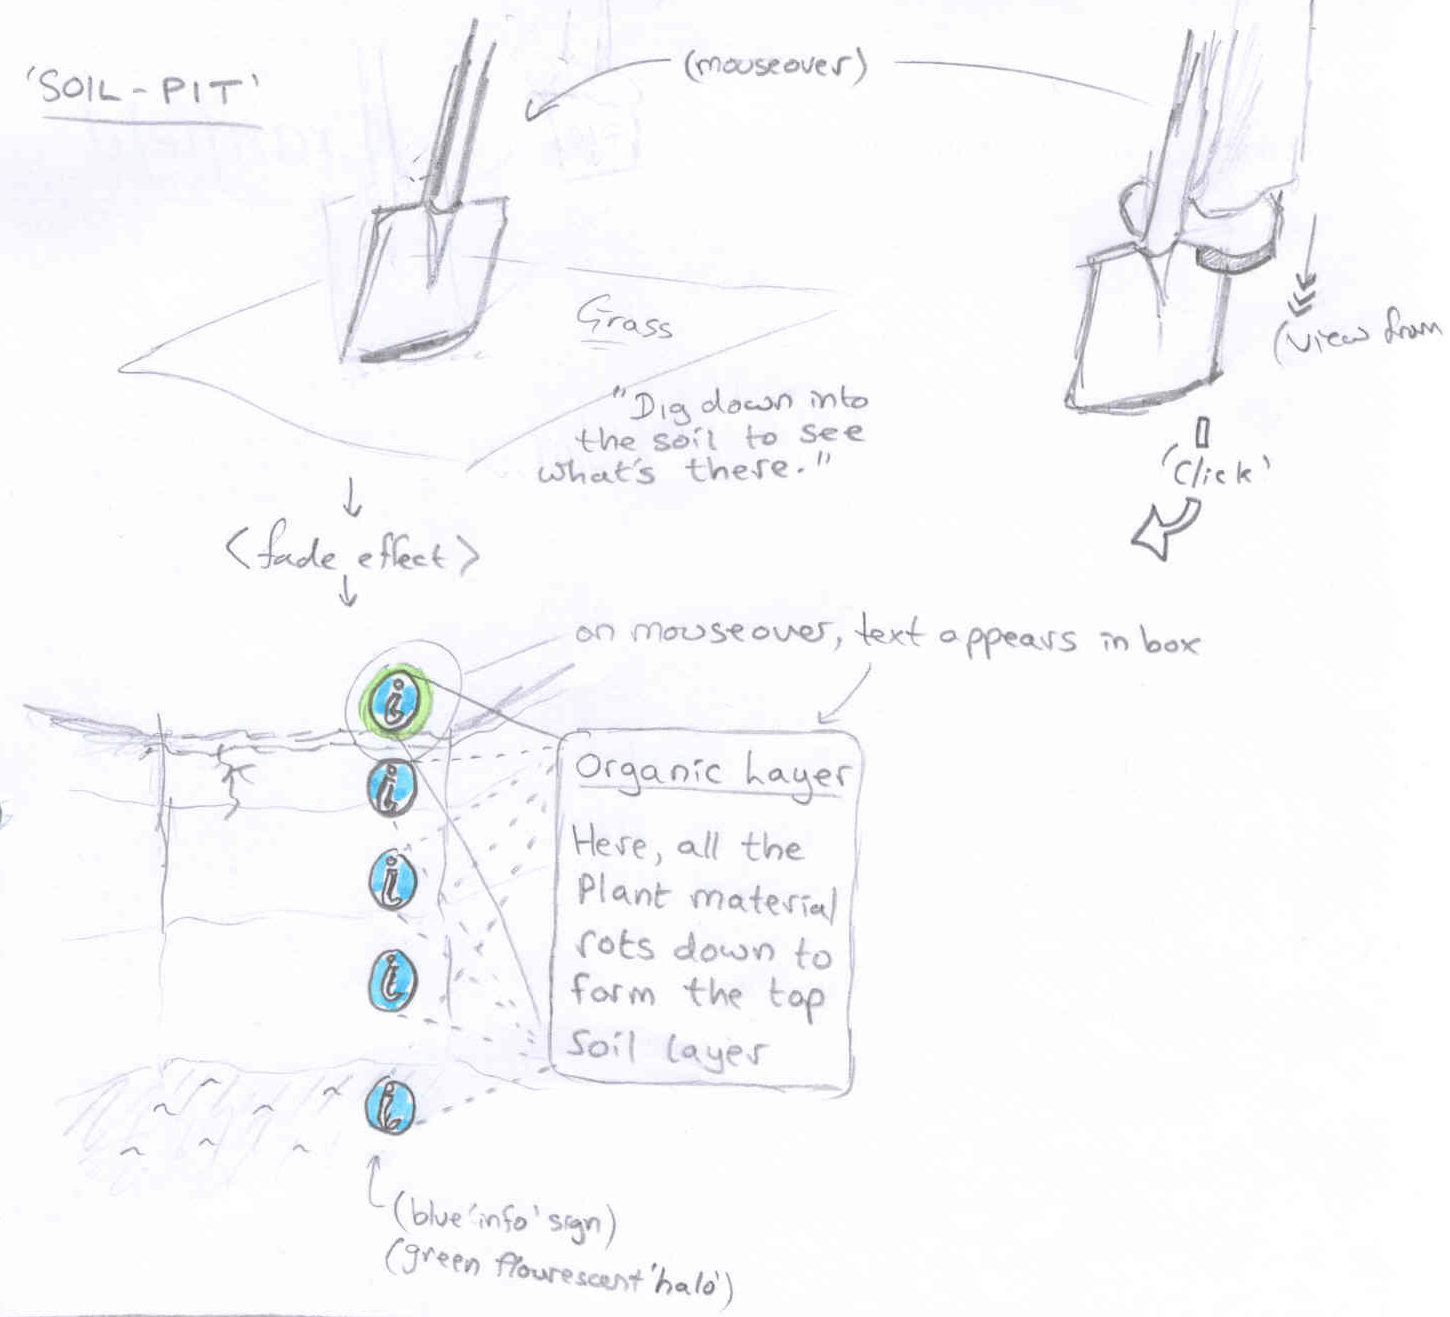 'SOIL-PIT'
(mouseover)
Grass
"Dig down into
the soil to see
what's there."
(view from
'Click'
<fade effect>
on mouseover, text appears in box
i
i
i
i
i
Organic Layer
Here, all the
Plant material
rots down to
form the top
Soil layer
(blue 'info' sign)
(green flourescent 'halo')